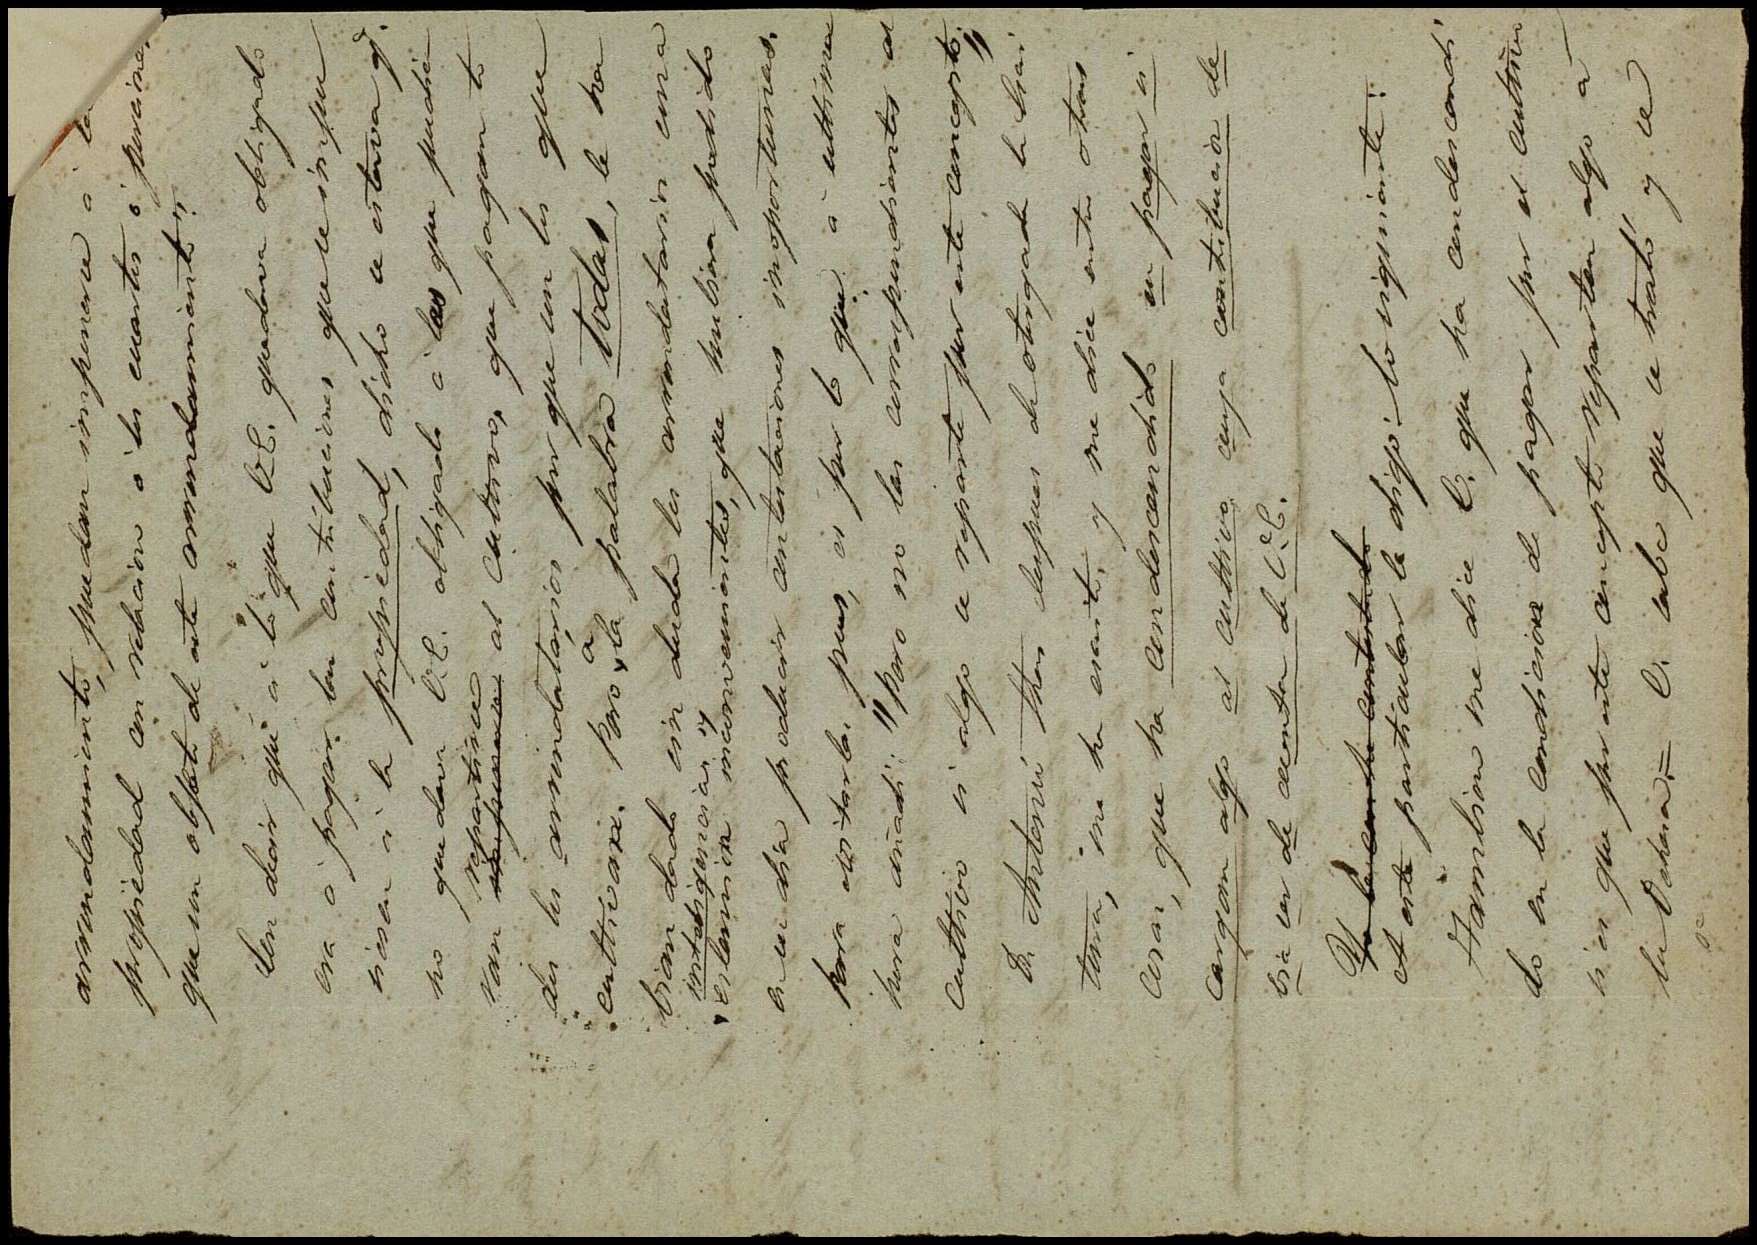 arrendamiento, puedan imponerse á la
propiedad con relacion á los cuartos ó porciones,
que son objeto de este arrendamiento".
Sin decir que á lo que V.E. quedava obliga​do
era á pagar las contribuciones que se impu
siesen á la propiedad, dicho se estava q.
no quedava V.E. obligado á las que pudie
ran repartirse al cultivo, que pagan to
dos los arrendatarios por que son los que
cultivan. Pero á la palabra todas, le ha
brian dado sin duda los arrendatarios una
estensión inconveniente, que hubiera podido
inteligencia y
en su dia producir contestaciones inoportunas,
para evitarlas pues, es por lo que á ultima
hora añadí: "Pero no las correspondientes al
cultivo si algo se reparte por este concepto."
D. Antonio despues de otorgada la Escri
tura, me ha escrito, y me dice entre otras
cosas, que ha condescendido en pagar si
cargan algo al cultivo cuya contribucion de
bia ser de cuenta de V.E.
Yo le he contestado
A este particular le digo lo siguiente:
Tambien me dice V. que ha condescendi
do en la condicion de pagar por el cultivo
si es que por este concepto reparten algo á
la Dehesa = V. sabe que se trató y se